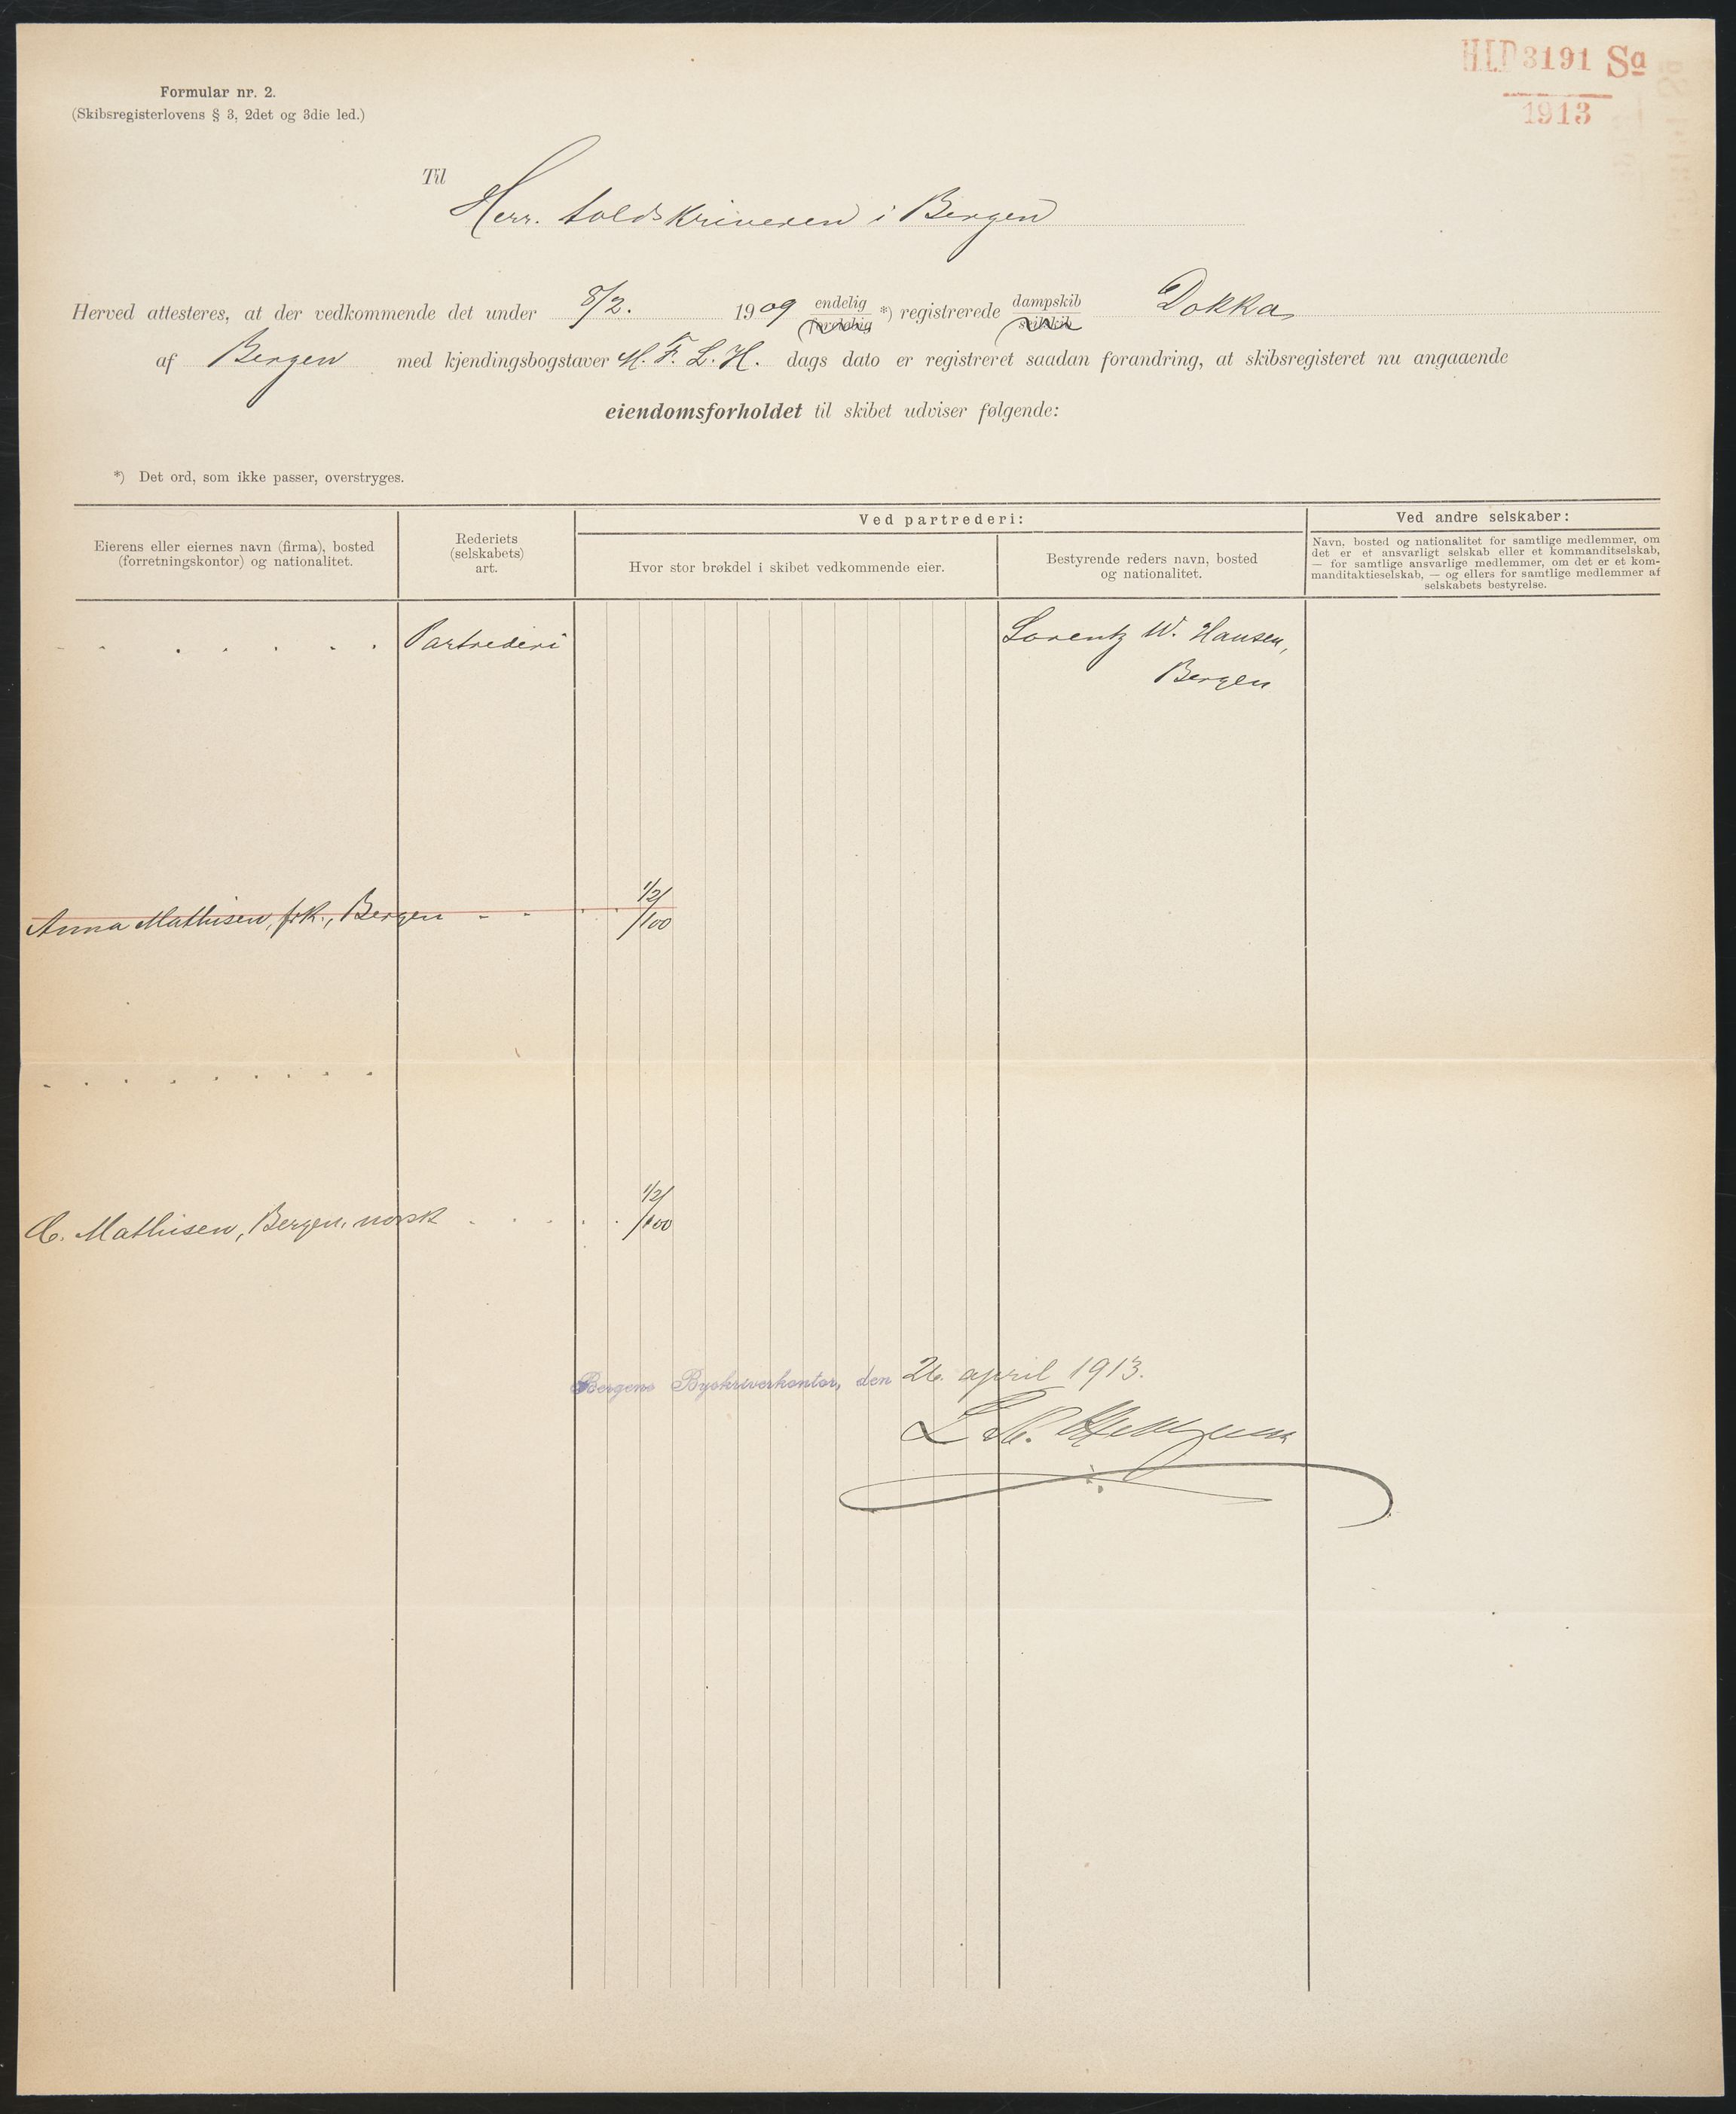 HLD 3191 Sa
1913
Formular nr. 2.
(Skibsregisterlovens § 3, 2det og 3die led.)
Til
Herr. toldskriveren i Bergen
Herved attesteres, at der vedkommende det under 8/2. 1909 endelig foreløbig *) registrerede dampskib seilskib Dokka
af Bergen med kjendingsbogstaver M. F. L. H. dags dato er registreret saadan forandring, at skibsregisteret nu angaaende
eiendomsforholdet til skibet udviser følgende:
*) Det ord, som ikke passer, overstryges.
Eierens eller eiernes navn (firma), bosted
(forretningskontor) og nationalitet.
Rederiets
(selskabets)
art.
Ved partrederi:
Hvor stor brøkdel i skibet vedkommende eier.
Bestyrende reders navn, bosted
og nationalitet.
Ved andre selskaber:
Navn, bosted og nationalitet for samtlige medlemmer, om
det er et ansvarligt selskab eller et kommanditselskab,
— for samtlige ansvarlige medlemmer, om det er et kom-
manditaktieselskab, — og ellers for samtlige medlemmer af
selskabets bestyrelse.
Partrederi
Lorentz W. Hansen,
Bergen
Anna Mathisen, frk., Bergen 1/2/100
Mathisen, Bergen, norsk 1/2/100
Bergens Byskriverkontor, den 26 april 1913.